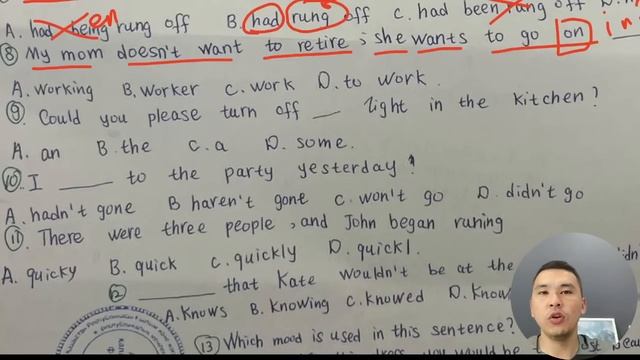 A. had being en rung off B. had rung off C. had been rang off
8) My mom doesn't want to retire; she wants to go on
A. working B. worker C. work D. to work.
9) Could you please turn off __ light in the kitchen?
A. an B. the C. a D. some.
10) I ____ to the party yesterday!
A. hadn't gone B haven't gone C. won't go D. didn't go
11) There were three people, and John began runing
A. quicky B. quick C. quickly D. quickl.
12 ____ that Kate wouldn't be at the
A. Knows B. Knowing C. knowed D. Know
13) Which mood is used in this sentence?
you would be